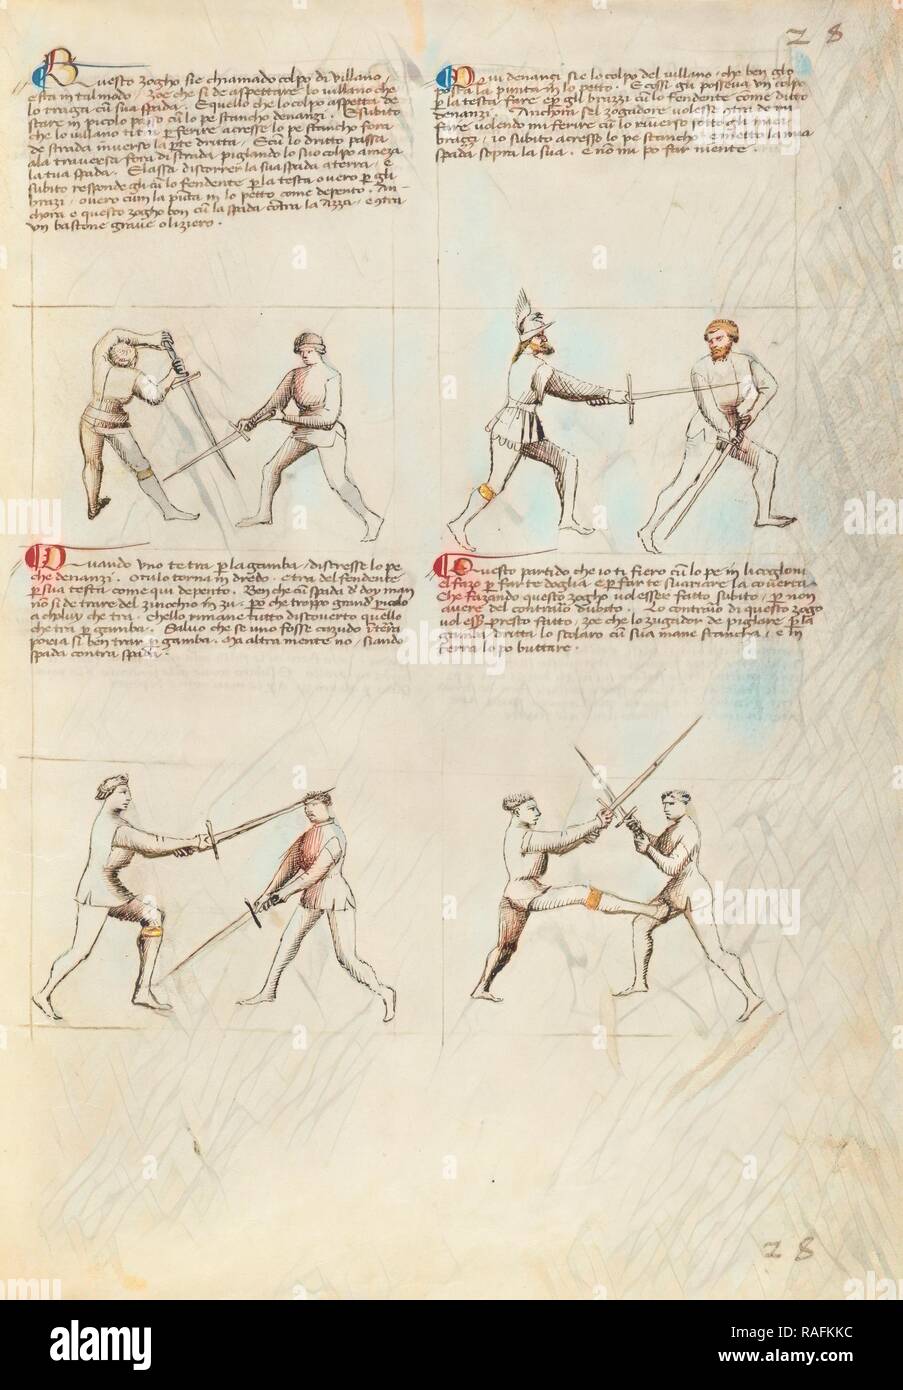 28
Questo zogho sie chiamado colpo di villano /
e sta in tal modo / zoe che si de aspettare lo villano che
lo traga cu sua spada . E quello che lo colpo aspetta de
stare in picolo passo cu lo pe stancho denanzi . E subito
che lo villano ti tra p ferire acresse lo pe stancho fora
de strada inverso la pte dritta . E cu lo dritto passa
ala traversa fora di strada piglando lo suo colpo a meza
la tua spada . E lassa discorrer la sua spada a terra / e
subito responde gli cu lo fendente p la testa overo p gli
brazi / overo cum la punta in lo petto come depento . An-
chora e questo zogho bon cu la spada contra la azza / e contra
un bastone grave o liziero .
Qui denanzi sie lo colpo del villano / che ben gl'o
posta la punta in lo petto . E cossi gli posseva un colpo
p la testa fare e p gli brazzi cu lo fendente come ditto
denanzi . Anchora sel zogadore volesse contra de mi
fare volendo mi ferire cu lo riverso sotto gli miei
brazzi / io subito acresso lo pe stancho e metto la mia
spada sopra la sua . e non mi po far niente .
Quando uno te tra p la gamba / discresse lo pe
che denanzi . O tu lo torna in dredo . e tra del fendente
p sua testa come qui depento . Ben che cu spada d doy man
no si de trare del zinochio in zu . po che troppo grand picolo
a choluy che tra . Chello rimane tutto discoverto quello
che tra p gamba . Salvo che se uno fosse cazudo i tera
poria si ben trar p gamba . Ma altra mente no / siando
spada contra spada .
Questo partido che io ti fiero cu lo pe in li cogloni
el fazo p far te doglia e p far te svariare la coverta
Che fazando questo zogho vol essere fatto subito / p non
avere del contrario dubito . Lo contrario di questo zogo
vol esser presto fatto / zoe che lo zugador de piglare p la
gamba dritta lo scolaro cu sua mane stancha / e in
terra lo po buttare .
28
a alamy
alamy
Image ID: RAFKKC
www.alamy.com